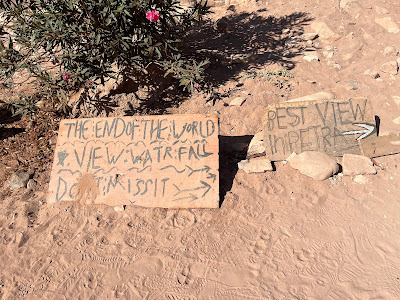 THE END OF THE WORLD
VIEW WATRFALL
DON'T MISS IT
BEST VIEW
IN PETRA